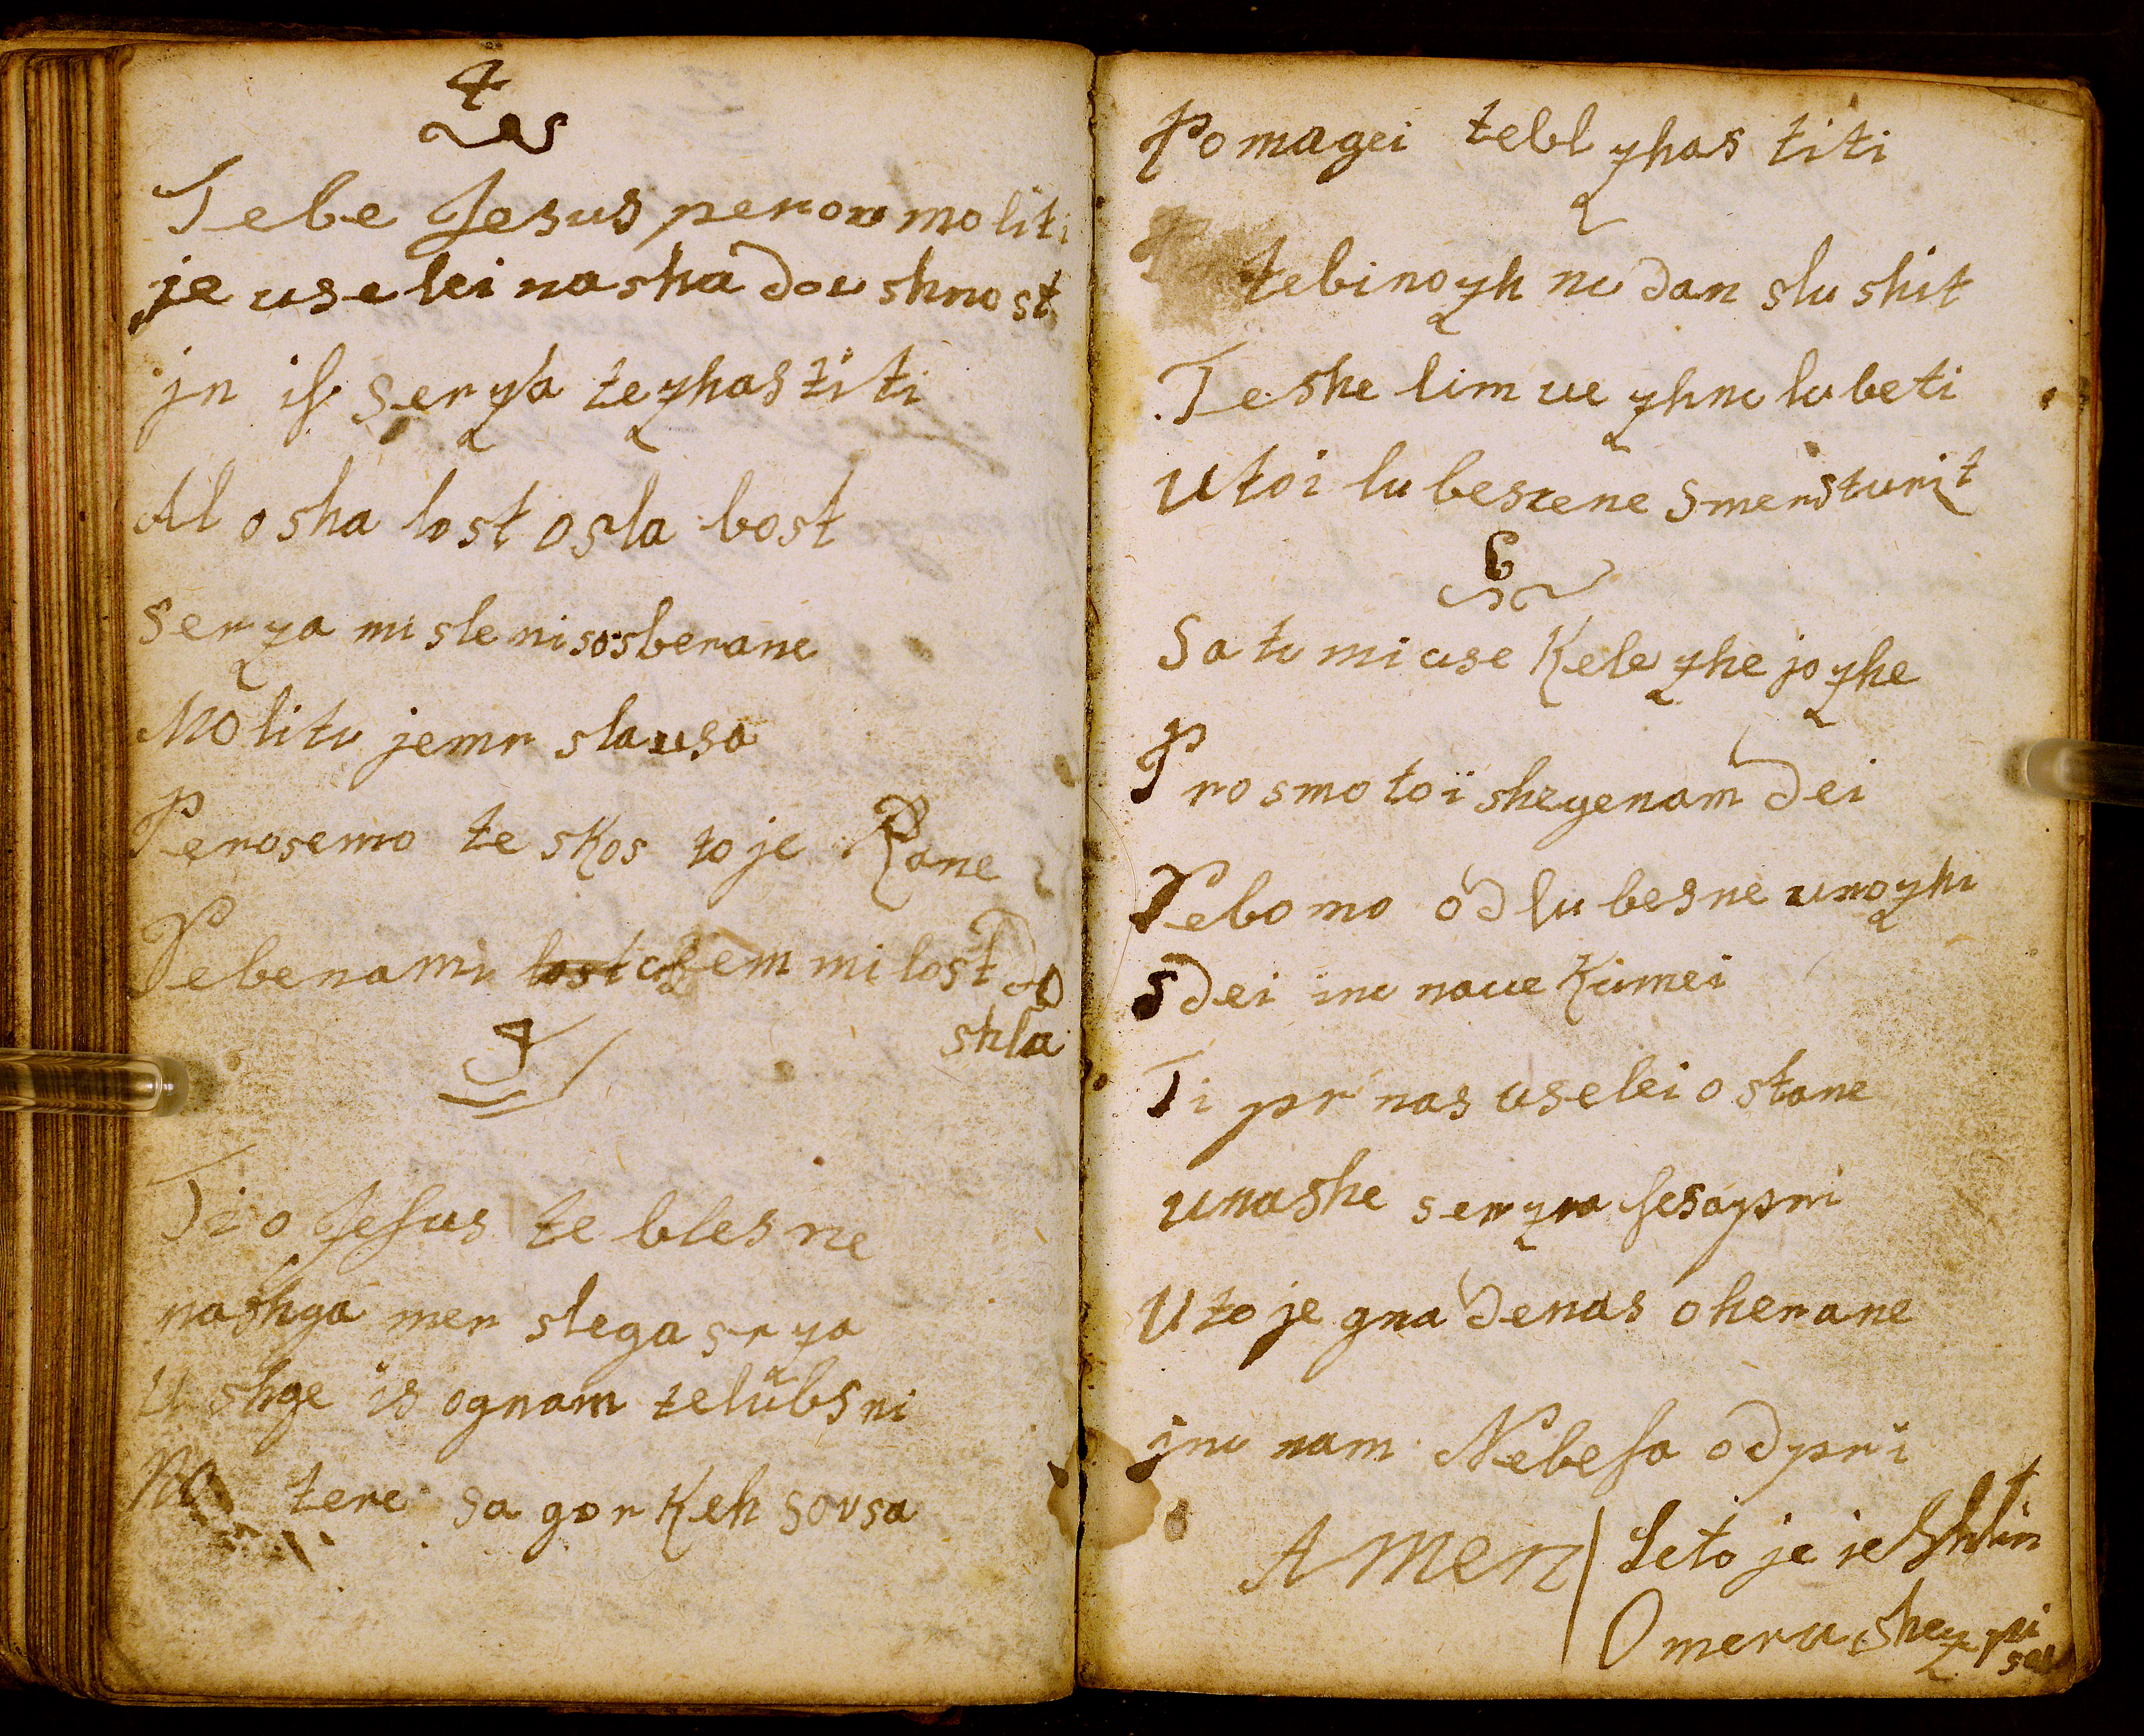 4
Tebe Jesus perou moliti
je uselei nasha dou shnost
jn is serza tezhastiti
Al osha lost osla bost
serza mi sle ni sosberane
Molitu jemr slausa
Perosemo te skos to je Rane
Pebenamu milost do
shla
Ti o Jesus te bles ne
nashga mer slega srza
U shge is ognam telübsni
No tere sa gor keh sousa
Pomagei tebl zhas titi
tebi nozh nu dan slu shit
Teshe lim ve zhnu lubeti
U toi lu beszene smerst urit
6
Sa tu mi use kele zhe jo zhe
Prosmo toi shegenam dei
Pebomo od lu besne unozhi
Sdei inu naue kumei
Ti pr nas uselei o stane
unashe serza sesapri
U to je gna denas oherane
jnu nam Nebesa odpri
Amen
Leto je ie
Omeru shez pi
sal